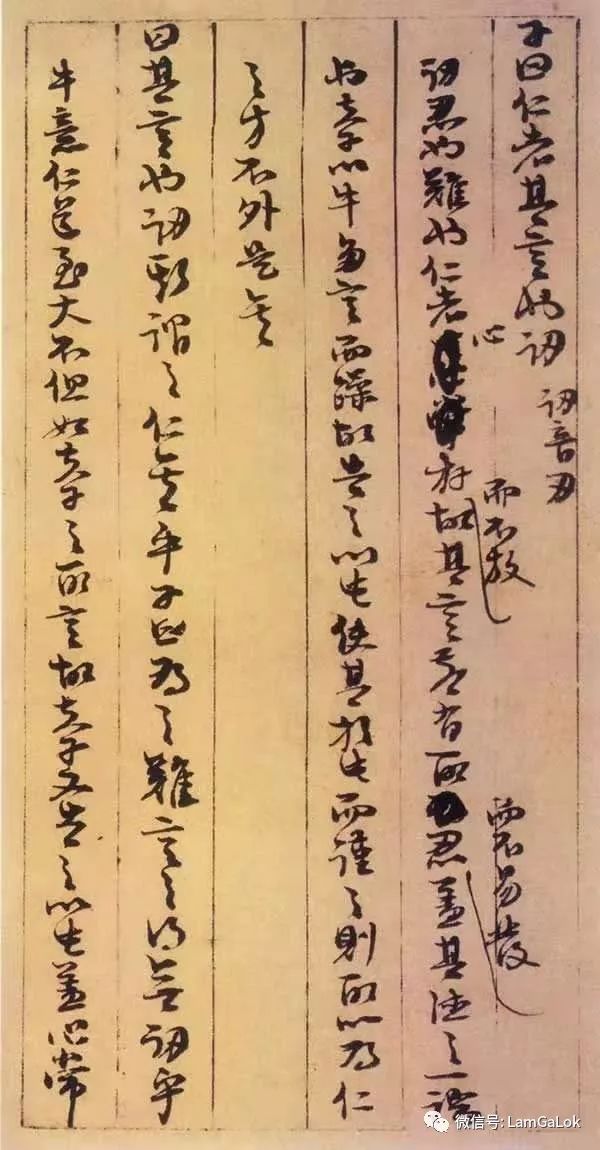 子曰仁者其言也訒 訒音刃
訒忍也難也仁者心存而不放故其言若有所忍而不易發蓋其德之一端
也夫子以牛多言而躁故告之以此使其於此而謹之則所以為仁
之方不外是矣
曰其言也訒斯謂之仁矣乎子曰為之難言之得無訒乎
牛意仁道至大不但如夫子之所言故夫子又告之以此蓋心常
微信号: LamGaLok